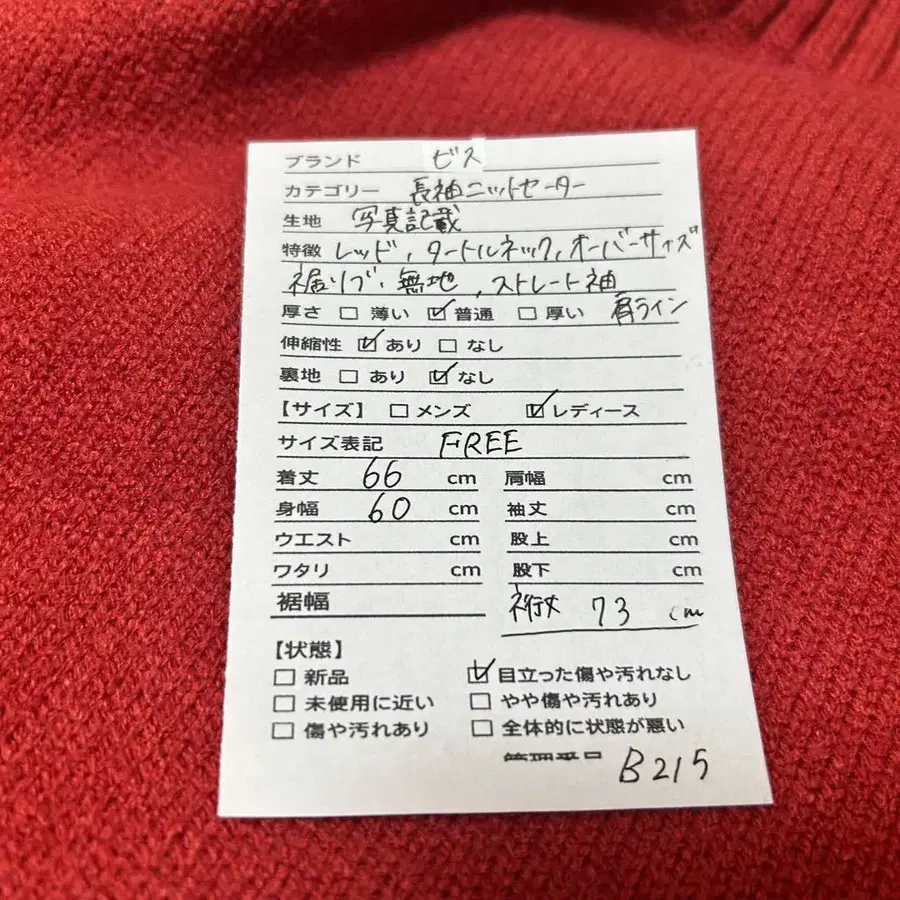 ブランド ビス
カテゴリー 長袖ニットセーター
生地 写真記載
特徴 レッド、タートルネック、オーバーサイズ
裾リブ、無地、ストレート袖
厚さ □ 薄い ☑ 普通 □ 厚い 肩ライン
伸縮性 ☑ あり □ なし
裏地 □ あり ☑ なし
【サイズ】 □ メンズ ☑ レディース
サイズ表記 FREE
着丈 66 cm 肩幅 cm
身幅 60 cm 袖丈 cm
ウエスト cm 股上 cm
ワタリ cm 股下 cm
裾幅 裄丈 73 cm
【状態】
□ 新品 ☑ 目立った傷や汚れなし
□ 未使用に近い □ やや傷や汚れあり
□ 傷や汚れあり □ 全体的に状態が悪い
管理番号 B215